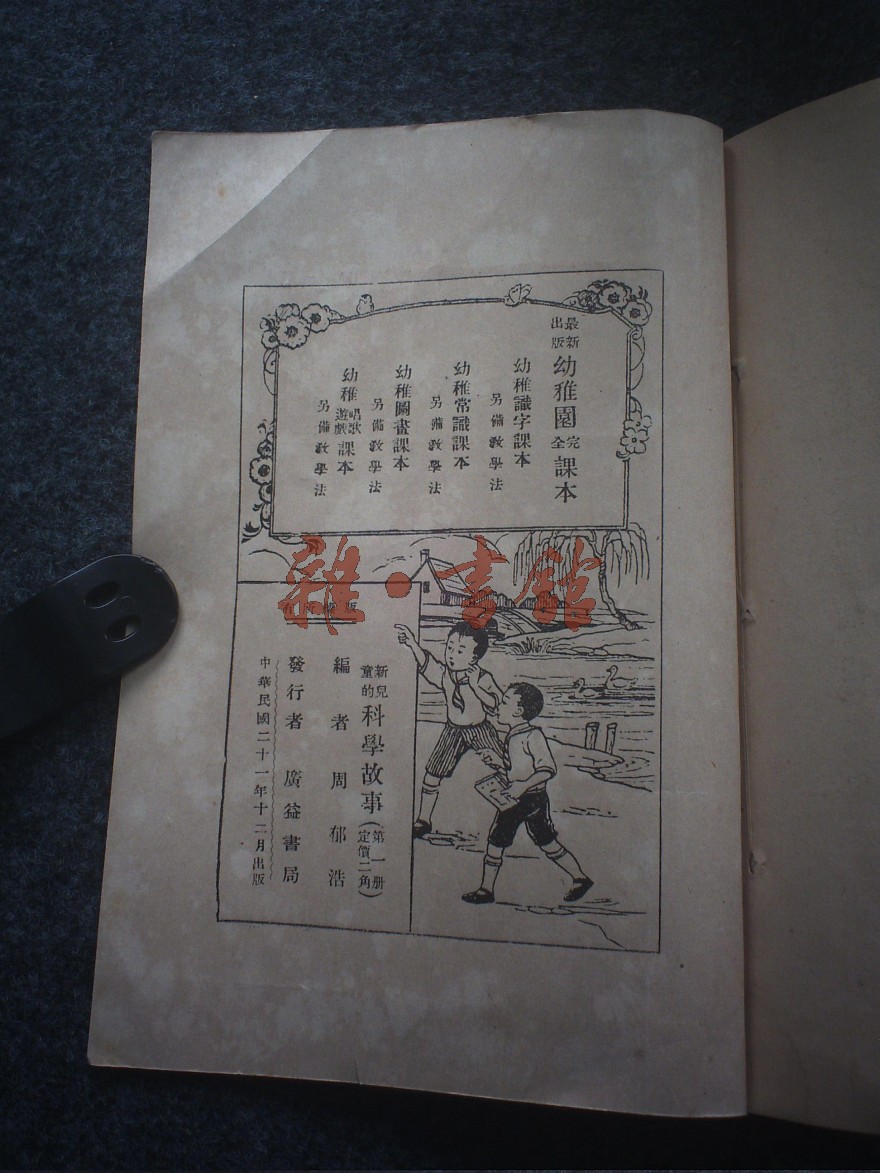 最新出版
幼稚園完全課本
幼稚識字課本
另備教學法
幼稚常識課本
另備教學法
幼稚圖畫課本
另備教學法
幼稚唱歌遊戲課本
另備教學法
雜·書館
新兒童的科學故事(第一册定價二角)
編者周郁浩
發行者廣益書局
中華民國二十一年十二月出版